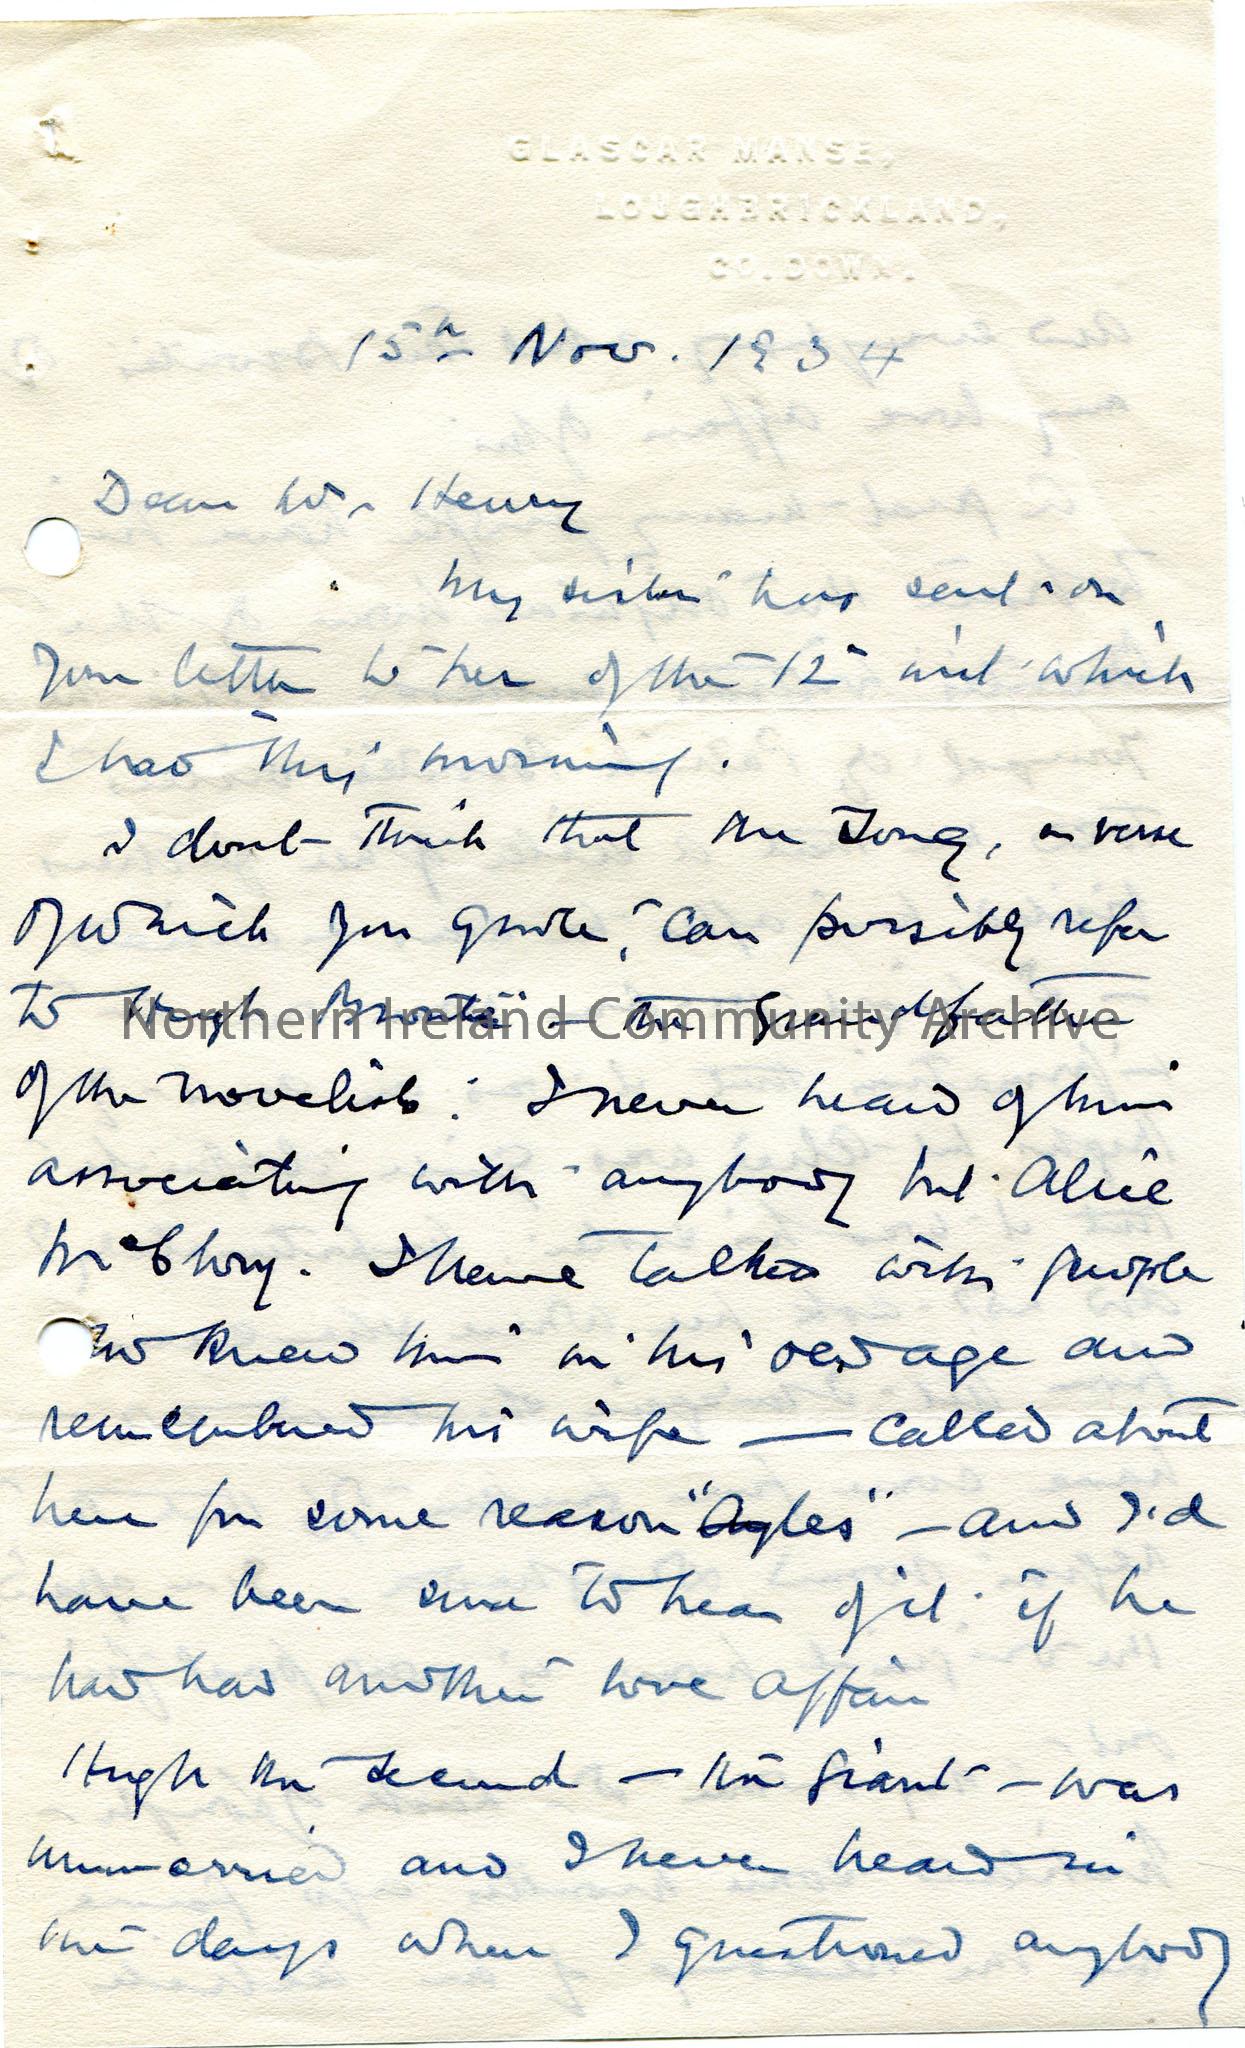 GLASCAR MANSE,
LOUGHBRICKLAND,
CO. DOWN.
15th Nov. 1934
Dear Mr. Henry
My sister has sent on
your letter to her of the 12th inst which
I had this morning.
I don't think that the song, a verse
of which you quote, can possibly refer
to Hugh Brontë — the Grandfather
of the novelists. I never heard of him
associating with anybody but Alice
McClory. I have talked with people
who knew him in his old age and
remembered his wife — called about
here for some reason "Ayles" — and I'd
have been sure to hear of it if he
had had another love affair
Hugh the Second — the Giant — was
unmarried and I never heard in
my days when I questioned anybody
Northern Ireland Community Archive